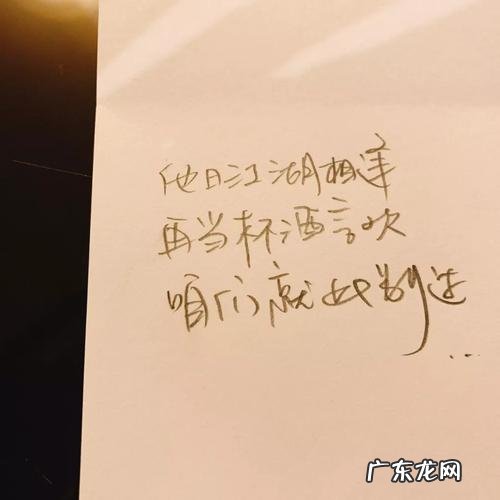 他日江湖相逢
再当杯酒言欢
咱们就此别过
...
广东龙网